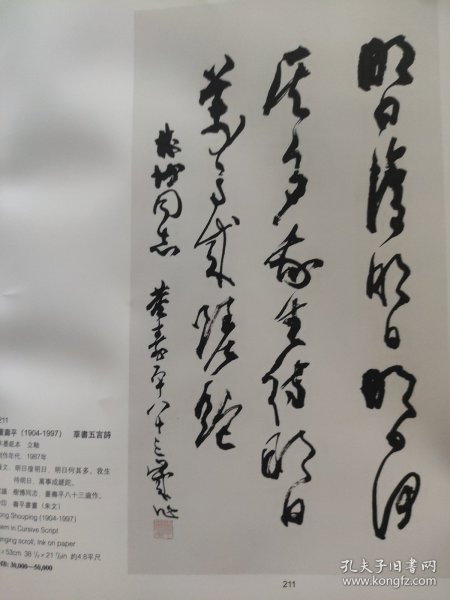 明日復明日明日何
其多我生待明日
萬事成蹉跎
樹博同志 董壽平八十三歲作
211
董壽平 (1904-1997) 草書五言詩
水墨紙本 立軸
創作年代：1987年
釋文：明日復明日，明日何其多。我生
待明日，萬事成蹉跎。
款識：樹博同志，董壽平八十三歲作。
鈐印：壽平書畫（朱文）
Dong Shouping (1904-1997)
Poem in Cursive Script
Hanging scroll, Ink on paper
×53cm 38 1/4×21 in 約4.6平尺
RMB: 30,000—50,000
211
孔夫子旧书网
www.kongfz.com